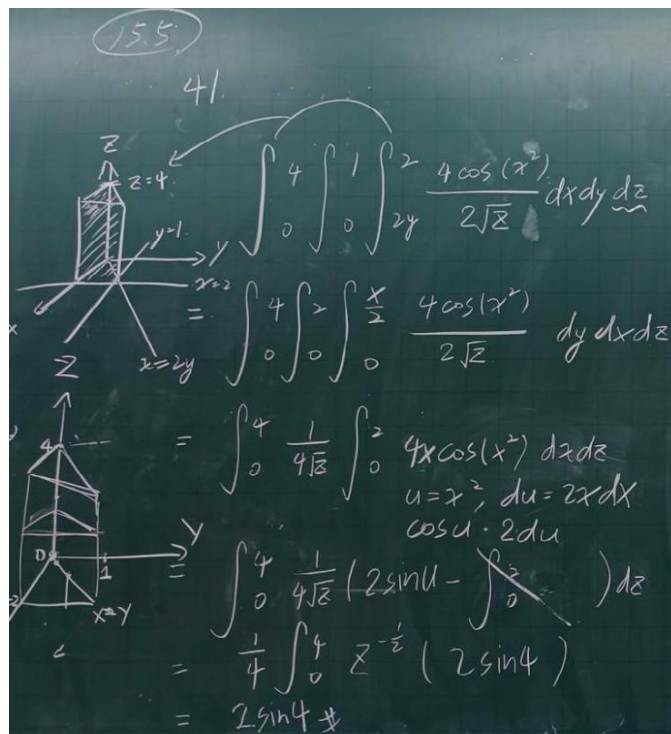 15.5
41.
Z
z=4
y=1
y
x=2
x
x=2y
∫₀⁴ ∫₀¹ ∫_{2y}^{2} \frac{4cos(x²)}{2√z} dx dy dz
= ∫₀⁴ ∫₀² ∫₀^{\frac{x}{2}} \frac{4cos(x²)}{2√z} dy dx dz
Z
4
0
1
Y
2
x=Y
= ∫₀⁴ \frac{1}{4√z} ∫₀² 4x cos(x²) dx dz
u=x², du=2xdx
cosu · 2du
= ∫₀⁴ \frac{1}{4√z} (2sinu - ∫₀² ) dz
= \frac{1}{4} ∫₀⁴ z^{-\frac{1}{2}} (2sin4)
= 2sin4 #